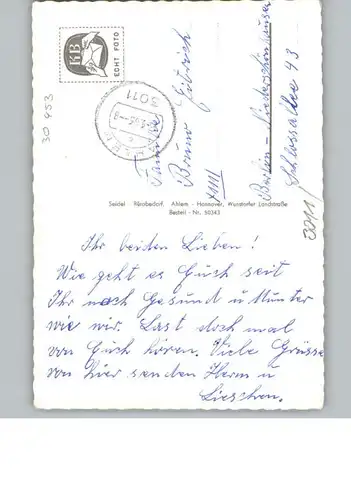 KB
ECHT FOTO
30 453
3011
Familie
Bruno
Berlin - Niederschönhausen
Schlossallee 43
3011/
Seidel Bürobedarf, Ahlem - Hannover, Wunstorfer Landstraße
Bestell - Nr. 50343
Ihr beiden Lieben!
Wie geht es Euch seit
Ihr noch Gesund u Munter
wie wir. Last doch mal
von Euch hören. Viele Grüsse
von hier senden Herm u
Lieschen.